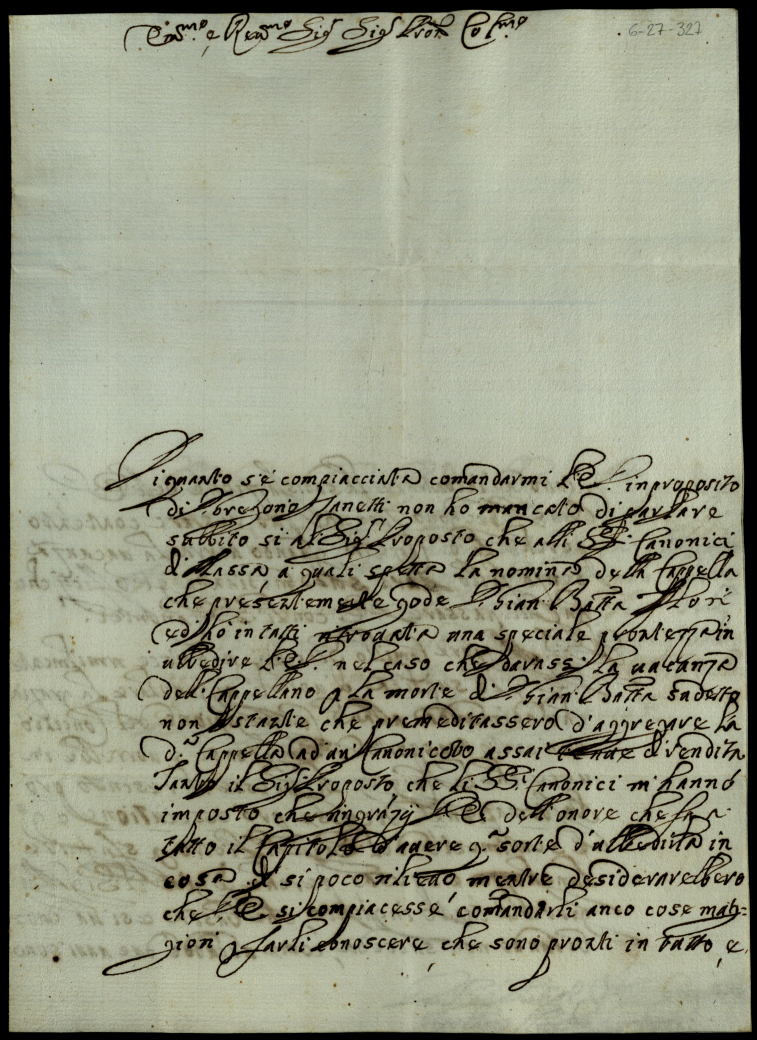 Em.mo e Rev.mo Sig.r Sig.r Pron. Col.mo
6-27-327
Di quanto s'é compiacciuta comandarmi V.E. in proposito
di D. Lorenzono Zanetti non ho mancato di parlare
subbito si al Sig.r Proposto che alli SS.ri Canonici
di Massa a quali spetta la nomina della Cappella
che presentemente gode D. Gian Batta Flori
ed hò in tutti ritrovata una speciale prontezza in
ubbedire V.E. nel caso che darassi la vacanza
del Cappellano p la morte di D. Gian Batta sudetto
non ostante che premeditassero d'aggregare la
d.a Cappella ad un Canonicato assai tenue di rendita
Tanto il Sig.r Proposto che li SS.ri Canonici m'hanno
imposto che ringrazij V.E. dell'onore che fa a
tutto il Capitolo d'avere q.a sorte d'ubbedirla in
cosa di si poco rilievo mentre desiderarebbero
che V.E. si compiacesse comandarli anco cose mag=
giori p farli conoscere che sono pronti in tutto, e